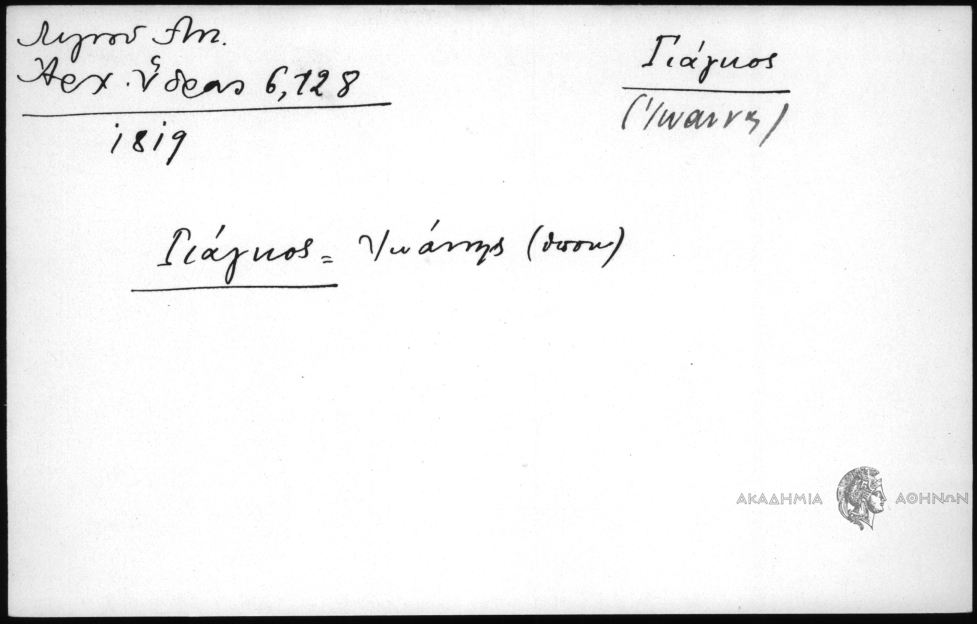 Λιγνού Αντ.
Ἀρχ. Ὕδρας 6,128
1819
Γιάγκος
(Ἰωάννης)
Γιάγκος = Ἰωάννης (ὑποκ)
ΑΚΑΔΗΜΙΑ ΑΘΗΝΩΝ